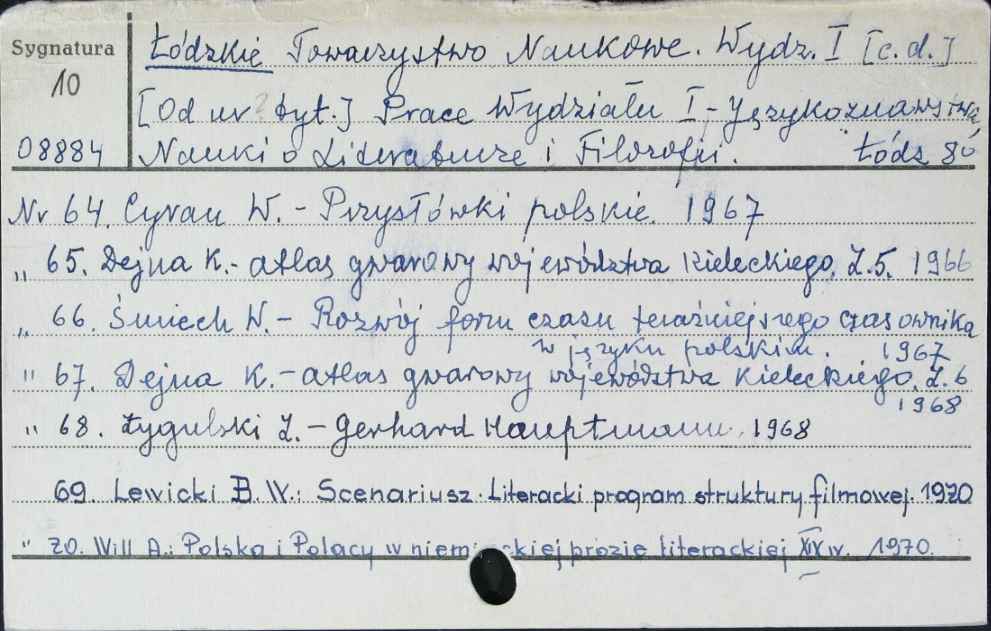 Sygnatura
10
08884
Łódzkie Towarzystwo Naukowe. Wydz. I [c.d.]
[Od nr 2 tyt.] Prace Wydziału I - Językoznawstwa,
Nauki o Literaturze i Filozofii. Łódź 8º
Nr 64. Cyran W. - Przysłówki polskie. 1967
„ 65. Dejna K. - atlas gwarowy województwa kieleckiego. Z.5. 1966
„ 66. Śmiech W. - Rozwój form czasu teraźniejszego czasownika
w języku polskim. 1967
" 67. Dejna K. - atlas gwarowy województwa kieleckiego. Z.6
1968
" 68. Żygulski Z. - Gerhard Hauptmann. 1968
69. Lewicki B. W.: Scenariusz. Literacki program struktury filmowej. 1970
" 70. Will A.: Polska i Polacy w niemieckiej prozie literackiej XIX w. 1970.